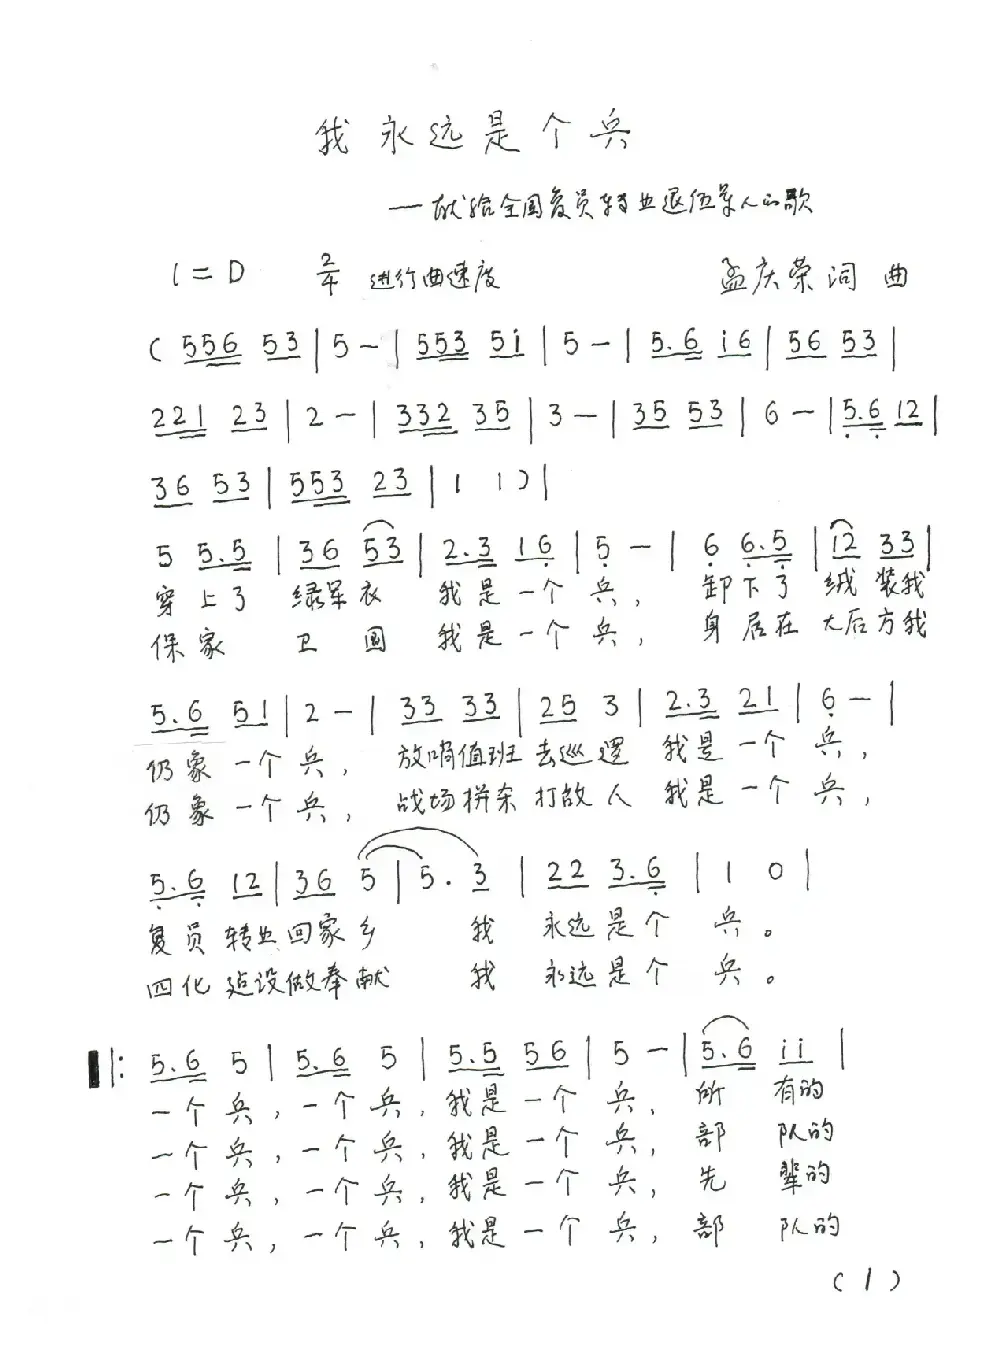 我永远是个兵
——献给全国复员转业退伍军人的歌
1=D 2/4 进行曲速度 孟庆荣词曲
( 556 53 | 5 – | 553 51̇ | 5 – | 5.6 1̇6 | 56 53 |
221 23 | 2 – | 332 35 | 3 – | 35 53 | 6 – | 5̣.6̣ 12 |
36 53 | 553 23 | 1 1 ) |
5 5.5 | 36 53 | 2.3 16̣ | 5̣ – | 6̣ 6̣.5̣ | 12 33 |
穿上了 绿军衣 我是一个 兵， 卸下了 绒装我
保家 卫国 我是一个 兵， 身居在 大后方我
5.6 51 | 2 – | 33 33 | 25 3 | 2.3 21 | 6̣ – |
仍象一个 兵， 放哨值班 去巡逻 我是一个 兵，
仍象一个 兵， 战场拼杀 打敌人 我是一个 兵，
5̣.6̣ 12 | 36 5 | 5. 3 | 22 3.6̣ | 1 0 |
复员转业回家乡 我 永远是个 兵。
四化建设做奉献 我 永远是个 兵。
‖: 5.6 5 | 5.6 5 | 5.5 56 | 5 – | 5.6 1̇1̇ |
一个兵，一个兵，我是一个 兵， 所 有的
一个兵，一个兵，我是一个 兵， 部 队的
一个兵，一个兵，我是一个 兵， 先 辈的
一个兵，一个兵，我是一个 兵， 部 队的
(1)